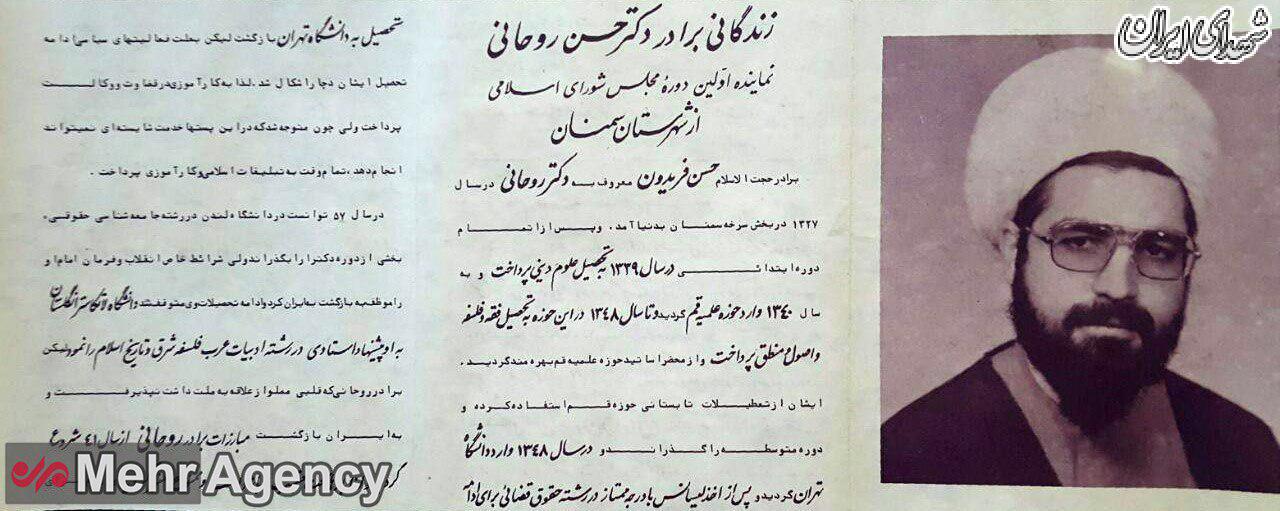 شهدای ایران
زندگانی برادر دکتر حسن روحانی
نماینده اولین دوره مجلس شورای اسلامی
از شهرستان سمنان
برادر حجت الاسلام حسن فریدون معروف به دکتر روحانی در سال
۱۳۲۷ در بخش سرخه سمنان بدنیا آمد. و پس از اتمام
دوره ابتدائی در سال ۱۳۳۹ به تحصیل علوم دینی پرداخت و به
سال ۱۳۴۰ وارد حوزه علمیه قم گردید و تا سال ۱۳۴۸ در این حوزه به تحصیل فقه و فلسفه
و اصول و منطق پرداخت و از محضر اساتید حوزه علمیه قم بهره مند گردید.
ایشان از تعطیلات تابستانی حوزه قم استفاده کرده و
دوره متوسطه را گذراند و در سال ۱۳۴۸ وارد دانشگاه
تهران گردید و پس از اخذ لیسانس با درجه ممتاز در رشته حقوق قضائی برای ادامه
تحصیل به دانشگاه تهران بازگشت لیکن بعلت فعالیتهای سیاسی ادامه
تحصیل ایشان دچار اشکال شد، لذا به کارآموزی در قضاوت و وکالت
پرداخت ولی چون متوجه شد که در این پستها خدمت شایسته ای نمیتواند
انجام دهد، تمام وقت به تبلیغات اسلامی و کارآموزی پرداخت.
در سال ۵۷ توانست در دانشگاه لندن در رشته جامعه شناسی حقوقی،
بخشی از دوره دکترا را بگذراند ولی شرائط خاص انقلاب و فرمان امام او
را موظف به بازگشت به ایران کرد و ادامه تحصیلات وی متوقف شد دانشگاه لانکاستر انگلستان
به او پیشنهاد استادی در رشته ادبیات عرب فلسفه شرقی و تاریخ اسلام را نمود ولیکن
برادر روحانی که قلبی مملو از علاقه به ملت داشت نپذیرفت و
به ایران بازگشت مبارزات برادر روحانی از سال ۴۱ شروع
Mehr Agency